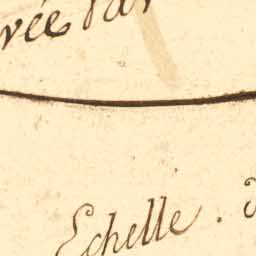 rée par
Echelle.